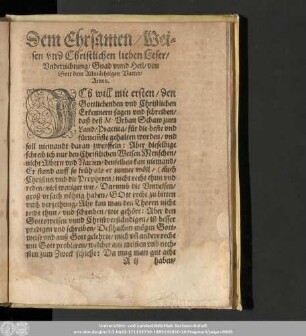 Dem Ehrsamen / Wei-
sen vnd Christlichen lieben Leser /
Vnderrichtung / Gnad vnnd Heil / von
Gott dem Allmächtigen Vatter /
Amen.
ICh will mit ersten / den
Gottliebenden vnd Christlichen
Erkennern sagen vnd schreiben /
daß deß M. Vrban Schaw zum
Land / für die beste vnd
fürnemste gehalten worden / vnd
soll niemandt daran zweiffeln: Aber dieselbige
schreib ich nur den Christlichen Weisen Menschen /
nicht Albern vnd Narren / denselben kan niemand /
Er stand auff so früh als er immer wöll / (durch
Christus vnd die Propheten) nicht recht thun vnd
reden / viel weniger wir / Darumb die Vnweisen
groß vrsach nöhtig haben / Gott rechte zu bitten
vmb verzeyhung / Ehe kan man den Thoren nicht
recht thun / vnd schreiben / wie gehört: Aber den
Gottsweisen vnnd Christverständigen / ist besser
predigen vnd schreiben / Deßhalben mögen Gott-
weise vnd auß Gott gelehrte / mich vñ andere recht
von Gott probieren / welcher am meisten vnd nech-
sten zum Zweck schieße: Da mag man gut acht
A ij haben /